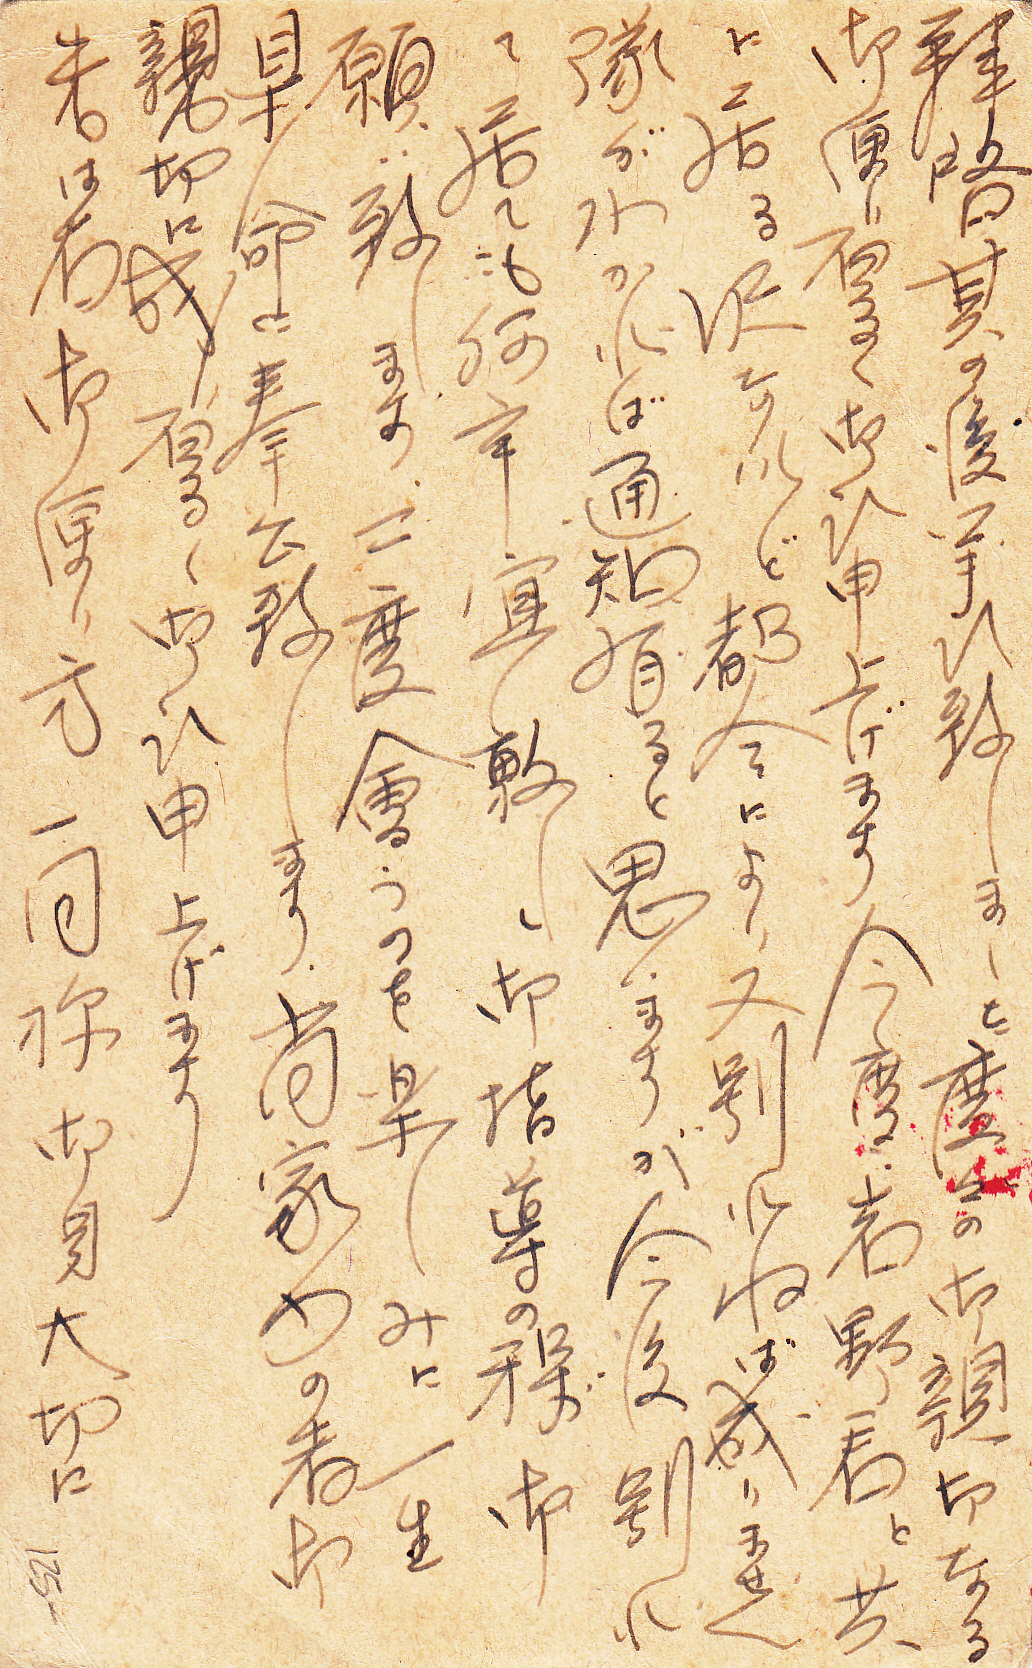 拝啓其の後御無沙汰致しました度々の御親切なる
御便り厚く御礼申上げます今度若野君と共
に居る訳なれど都合により又別れねば成りません
隊がわかれば通知有ると思ひますが今後別れ
て居ても何卒宜敷く御指導の程御
願ひ致します二度會うのを楽しみに一生
懸命に奉公致します尚家内の者御
親切に成り厚く御礼申上げます
先は右御便り方一同様御身大切に
125